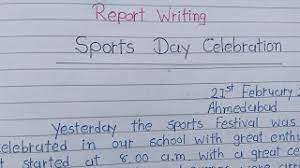 Report Writing
Sports Day Celebration
21st February
Ahmedabad
Yesterday the sports festival was
celebrated in our school with great enthu
started at 8.00 a.m with a great ce